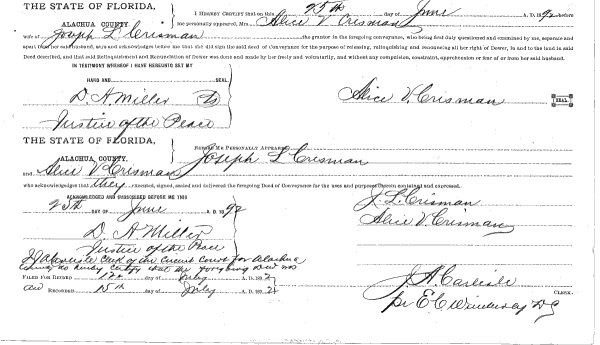 THE STATE OF FLORIDA,
ALACHUA COUNTY.
I HEREBY CERTIFY that on this 25th day of June A. D. 1892 before
me personally appeared, Mrs. Alice V. Crisman
wife of Joseph L Crisman the grantor in the foregoing conveyance, who being first duly questioned and examined by me, separate and
apart from her said husband, says and acknowledges before me that she did sign the said deed of Conveyance for the purpose of releasing, relinquishing and renouncing all her right of Dower, in and to the land in said
Deed described, and that said Relinquishment and Renunciation of Dower was done and made by her freely and voluntarily, and without any compulsion, constraint, apprehension or fear of or from her said husband.
IN TESTIMONY WHEREOF I HAVE HEREUNTO SET MY
HAND AND SEAL
D. A. Miller Alice V. Crisman SEAL.
Justice of the Peace
THE STATE OF FLORIDA,
ALACHUA COUNTY.
BEFORE ME PERSONALLY APPEARED Joseph L Crisman
and Alice V. Crisman
who acknowledged that they executed, signed, sealed and delivered the foregoing Deed of Conveyance for the uses and purposes therein contained and expressed.
ACKNOWLEDGED AND SUBSCRIBED BEFORE ME THIS
25th DAY OF June A. D. 1892
J. L. Crisman
D. A. Miller Alice V. Crisman
Justice of the Peace
Clerk of Circuit Court for Alachua
County do hereby certify that the foregoing Deed was
FILED FOR RECORD 12th day of July A. D. 1892
and RECORDED 15th day of July A. D. 1892
J. A. Carlisle CLERK.
pr E C